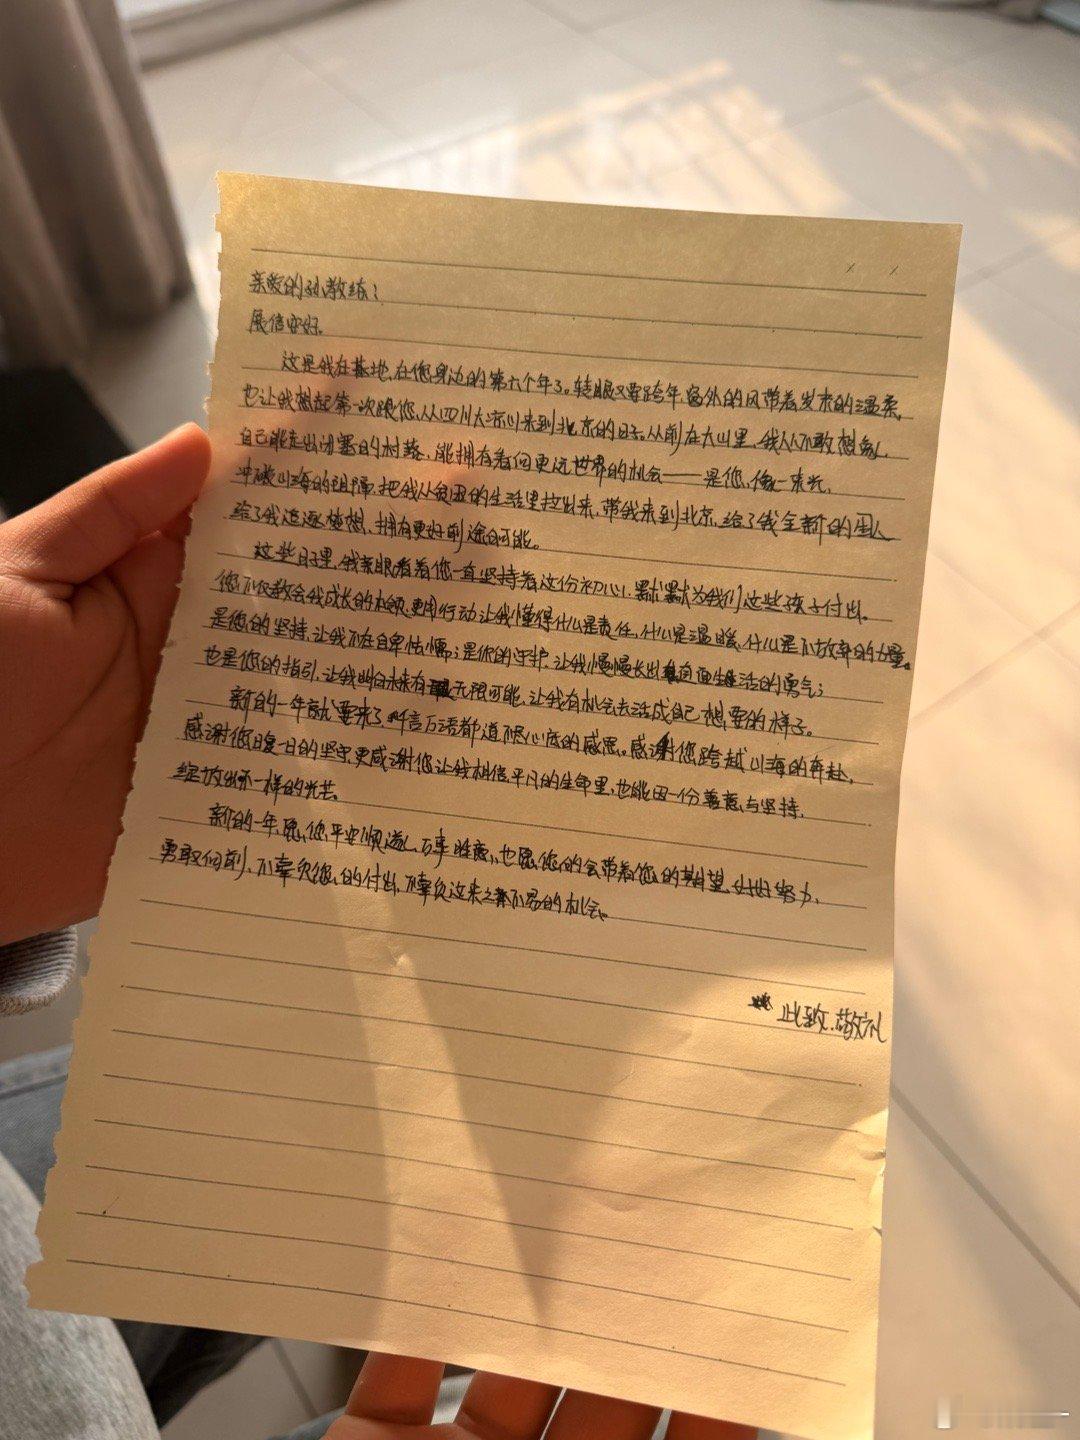 亲爱的孙教练：
展信安好。
这是我在基地，在您身边的第六个年了。转眼又要跨年，窗外的风带着岁末的温柔，
也让我想起第一次跟您，从四川大凉山来到北京的日子。从前在大山里，我从不敢想象，
自己能走出闭塞的村落，能拥有看向更远世界的机会——是您，像一束光，
冲破山海的阻隔，把我从贫困的生活里拉出来，带我来到北京，给了我全新的人
给了我追逐梦想，拥有更好前途的可能。
这些日子里，我亲眼看着您一直坚持着这份初心，默默为我们这些孩子付出。
您不仅教会我成长的本领，更用行动让我懂得什么是责任，什么是温暖，什么是不放弃的力量。
是您的坚持，让我不在自卑怯懦；是你的守护，让我慢慢长出直面生活的勇气；
也是您的指引，让我明白未来有无限可能，让我有机会去活成自己想要的样子。
新的一年就要来了，千言万语都道不尽心底的感恩。感谢您跨越山海的奔赴，
感谢您日复一日的坚守，更感谢您让我相信平凡的生命里，也能因一份善意与坚持，
绽放出不一样的光芒。
新的一年，愿您平安顺遂，万事胜意，也愿您的会带着您的期望，好好努力，
勇敢向前，不辜负您的付出，不辜负这来之不易的机会。
此致.敬礼